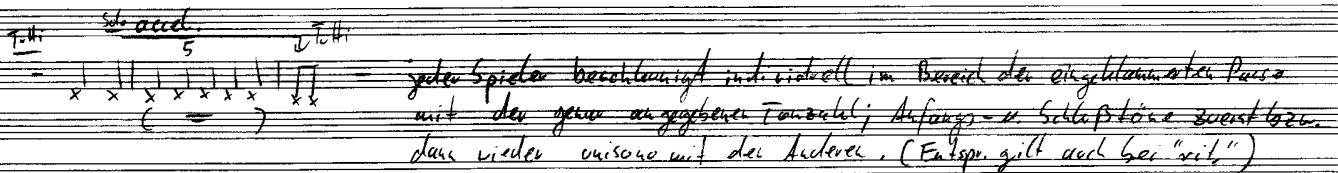 Tutti Solo accel. Tutti
5
jeder Spieler beschleunigt individuell im Bereich der eingeklammerten Pause
mit der genau angegebenen Tonzahl; Anfangs- u. Schlußtöne zuerst bzw.
dann wieder unisono mit den Anderen. (Entspr. gilt auch bei "rit.")